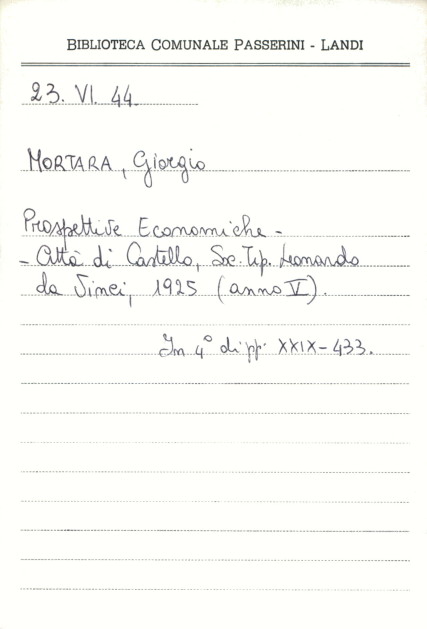 BIBLIOTECA COMUNALE PASSERINI - LANDI
23. VI. 44.
MORTARA, Giorgio
Prospettive Economiche -
- Città di Castello, Soc. Tip. Leonardo
da Vinci, 1925 (anno V).
In 4° di pp. XXIX-433.